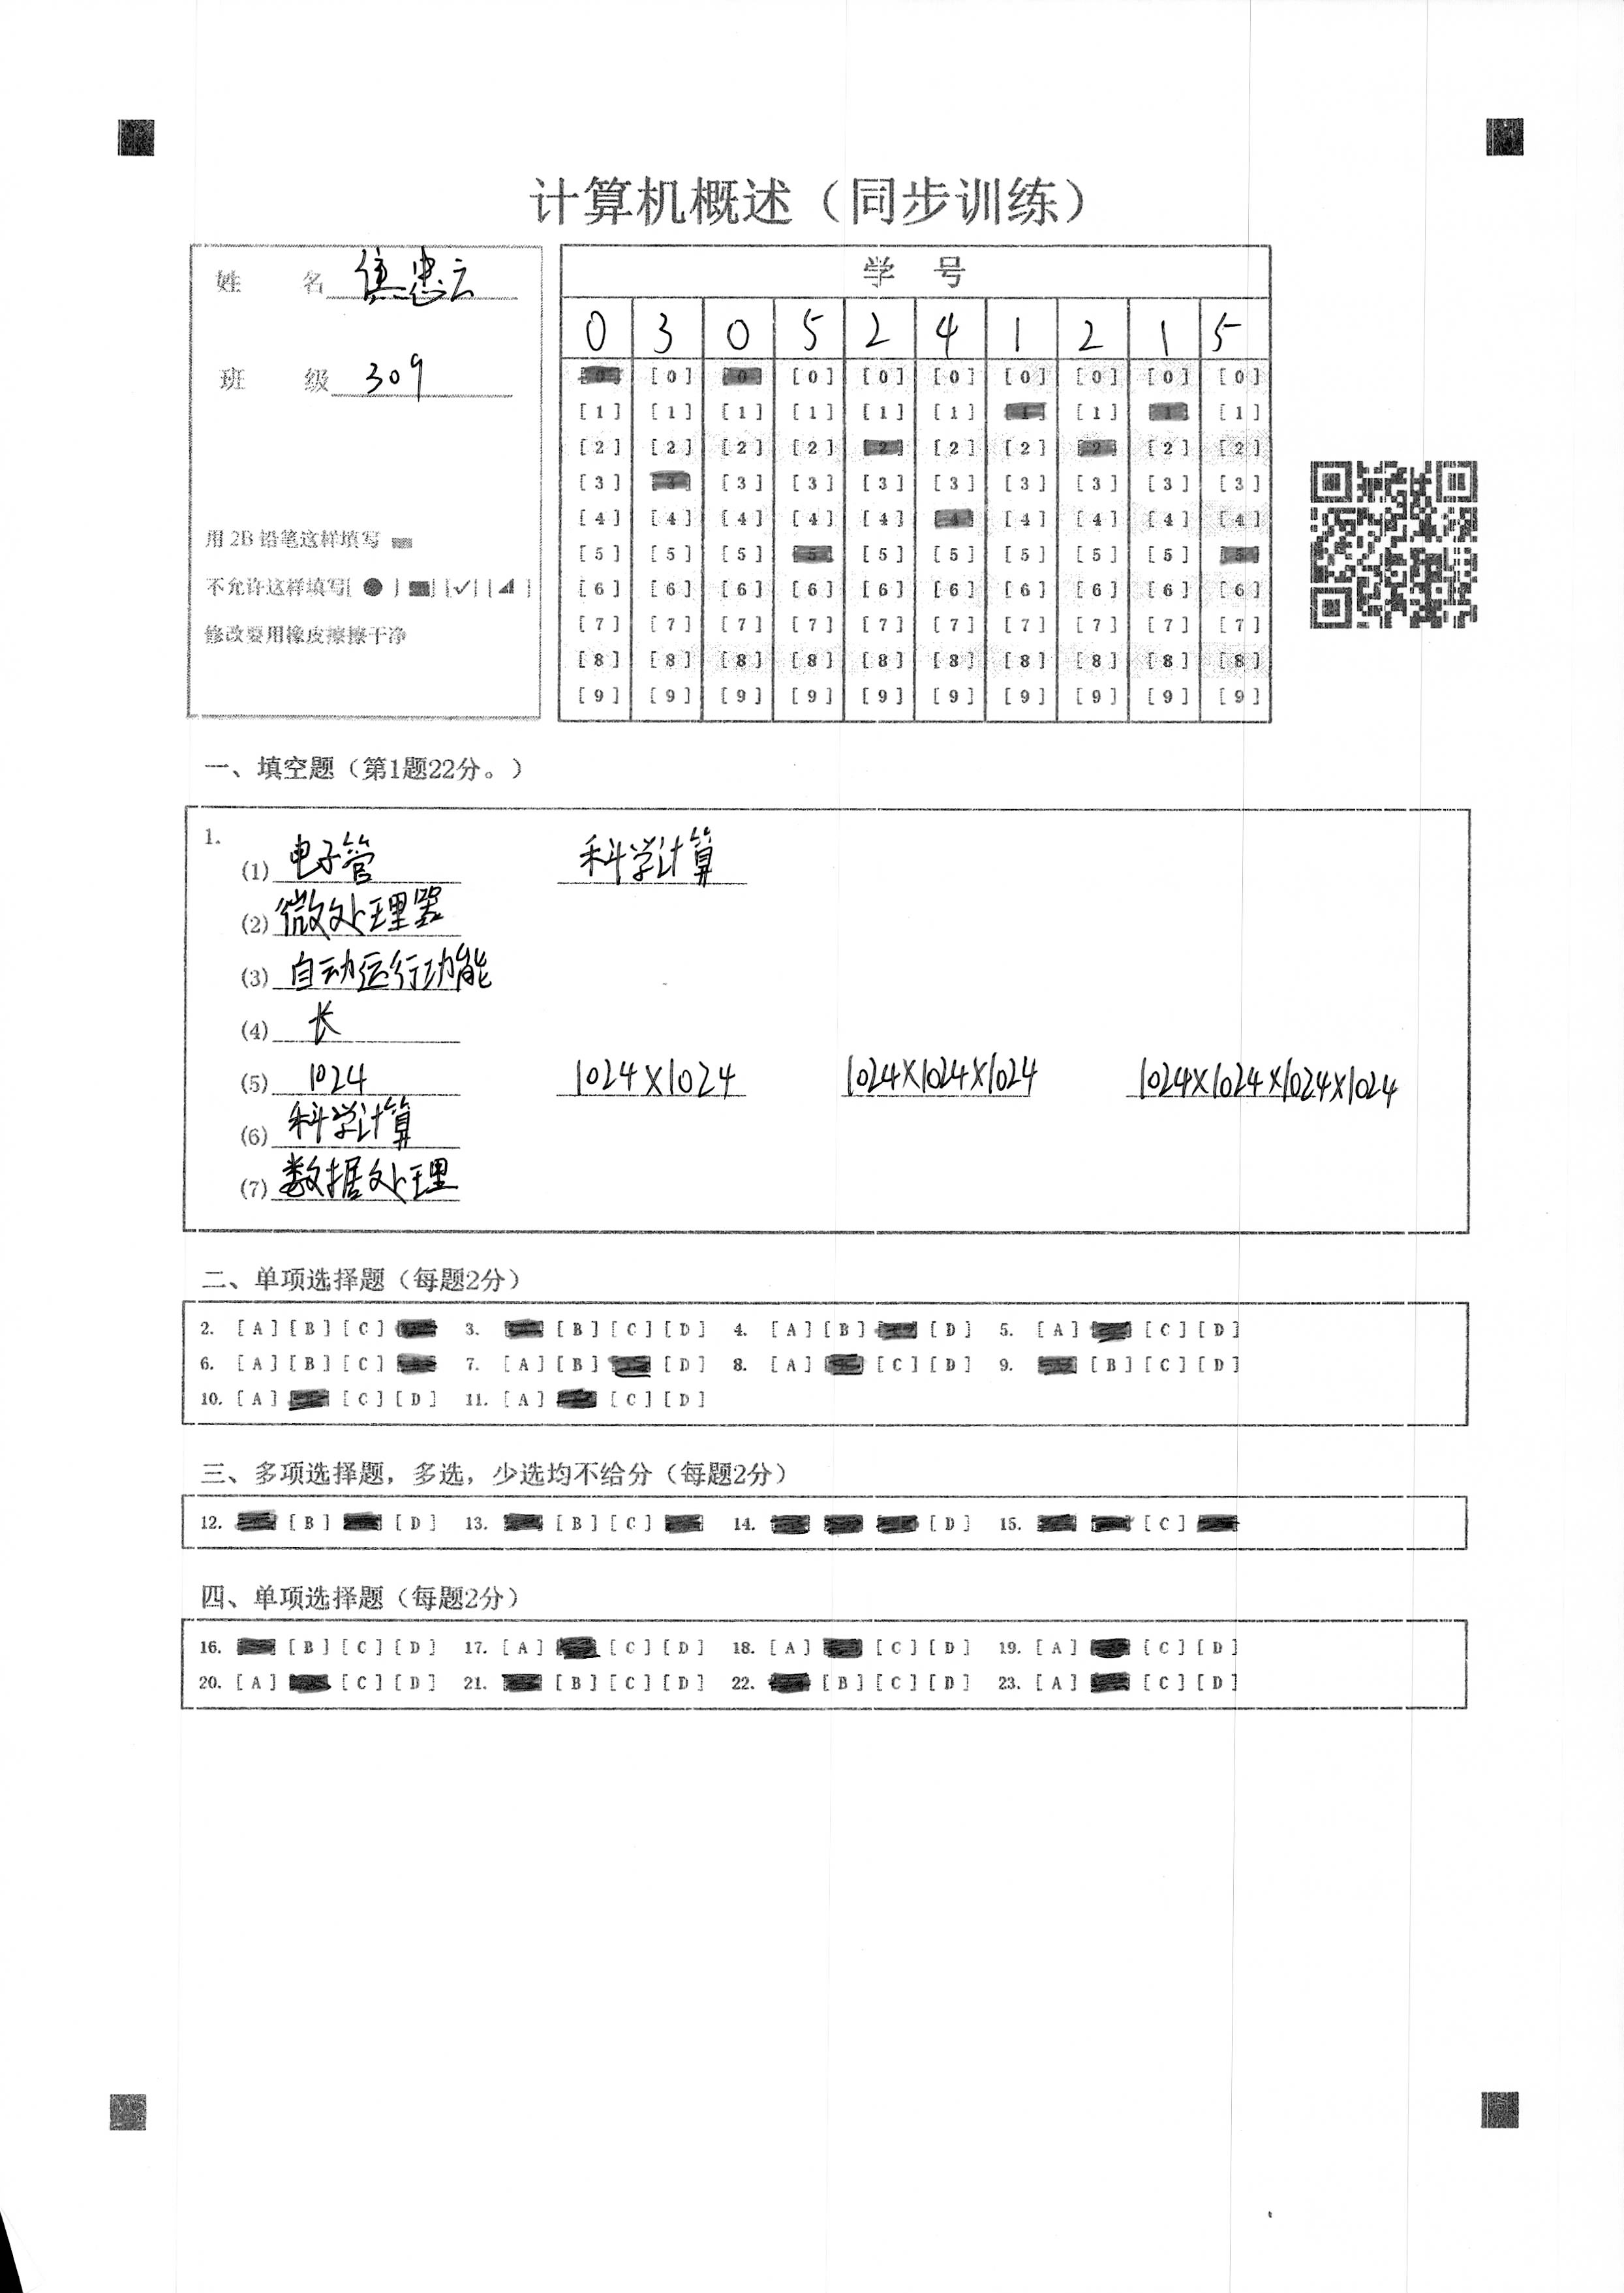 计算机概述（同步训练）
姓 名 焦忠云
班 级 309
用 2B 铅笔这样填写
不允许这样填写[ ● ] [■] [✓] [◢]
修改要用橡皮擦擦干净
学 号
0 3 0 5 2 4 1 2 1 5
[0] [0] [0] [0] [0] [0] [0] [0] [0] [0]
[1] [1] [1] [1] [1] [1] [1] [1] [1] [1]
[2] [2] [2] [2] [2] [2] [2] [2] [2] [2]
[3] [3] [3] [3] [3] [3] [3] [3] [3] [3]
[4] [4] [4] [4] [4] [4] [4] [4] [4] [4]
[5] [5] [5] [5] [5] [5] [5] [5] [5] [5]
[6] [6] [6] [6] [6] [6] [6] [6] [6] [6]
[7] [7] [7] [7] [7] [7] [7] [7] [7] [7]
[8] [8] [8] [8] [8] [8] [8] [8] [8] [8]
[9] [9] [9] [9] [9] [9] [9] [9] [9] [9]
一、填空题（第1题22分。）
1.
(1) 电子管 科学计算
(2) 微处理器
(3) 自动运行功能
(4) 长
(5) 1024 1024×1024 1024×1024×1024 1024×1024×1024×1024
(6) 科学计算
(7) 数据处理
二、单项选择题（每题2分）
2. [A] [B] [C] 3. [B] [C] [D] 4. [A] [B] [D] 5. [A] [C] [D]
6. [A] [B] [C] 7. [A] [B] [D] 8. [A] [C] [D] 9. [B] [C] [D]
10. [A] [C] [D] 11. [A] [C] [D]
三、多项选择题，多选，少选均不给分（每题2分）
12. [B] [D] 13. [B] [C] 14. [D] 15. [C]
四、单项选择题（每题2分）
16. [B] [C] [D] 17. [A] [C] [D] 18. [A] [C] [D] 19. [A] [C] [D]
20. [A] [C] [D] 21. [B] [C] [D] 22. [B] [C] [D] 23. [A] [C] [D]